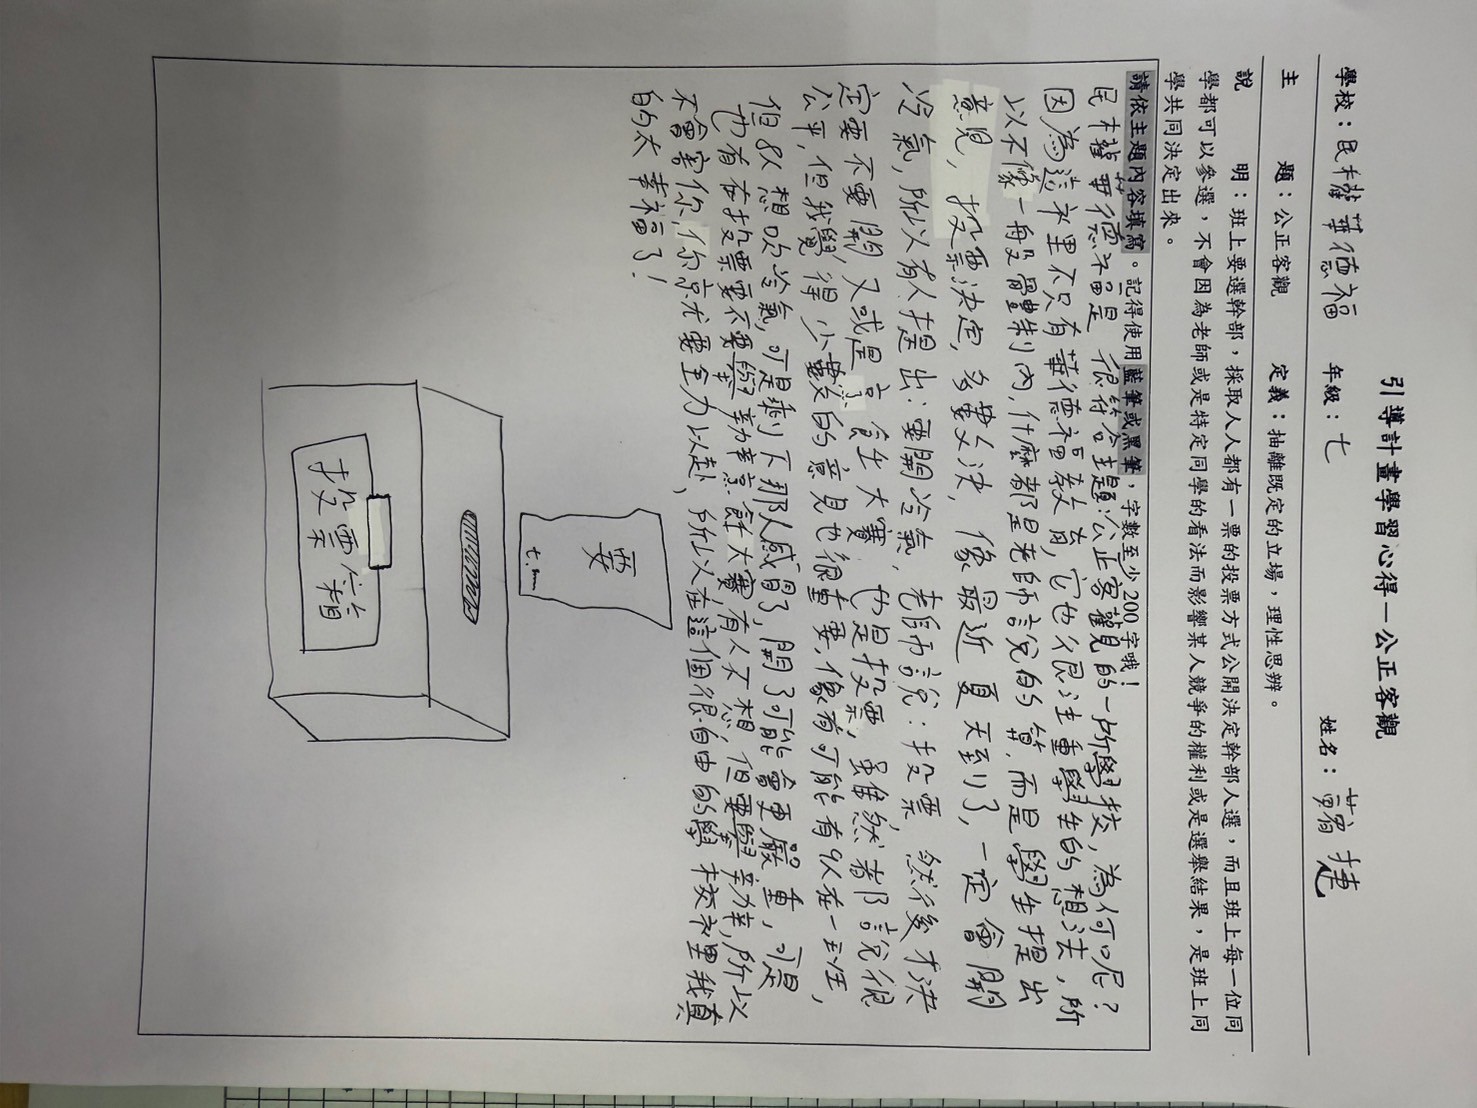 引導計畫學習心得—公正客觀
學校：民權華德福 年級：七 姓名：蕭捷
主 題：公正客觀 定義：抽離既定的立場，理性思辨。
說 明：班上要選幹部，採取人人都有一票的投票方式公開決定幹部人選，而且班上每一位同
學都可以參選，不會因為老師或是特定同學的看法而影響某人競爭的權利或是選舉結果，是班上同
學共同決定出來。
請依主題內容填寫。記得使用藍筆或黑筆，字數至少200字哦！
民權華德福是很符合主題：公正客觀的一所學校，為何呢？
因為這裡不只有華德福教育，它也很注重學生的想法，所
以不像一般體制內，什麼都是老師說的算，而是學生提出
意見，投票決定，多數決，像最近夏天到了，一定會開
冷氣，所以有人提出：要開冷氣，老師說：投票，然後才決
定要不要開，又或是烹飪大賽，也是投票，雖然都說很
公平，但我覺得少數的意見也很重要，像有可能有9人在一班，
但8人想吹冷氣，可是剩下那人感冒了，開了可能會更嚴重，可是
也有在投票要不要舉辦烹飪大賽，有人不想，但要舉辦，所以
不會害你，你就要全力以赴，所以在這個很自由的學校裡我真
的太幸福了！
要
七.
投票箱